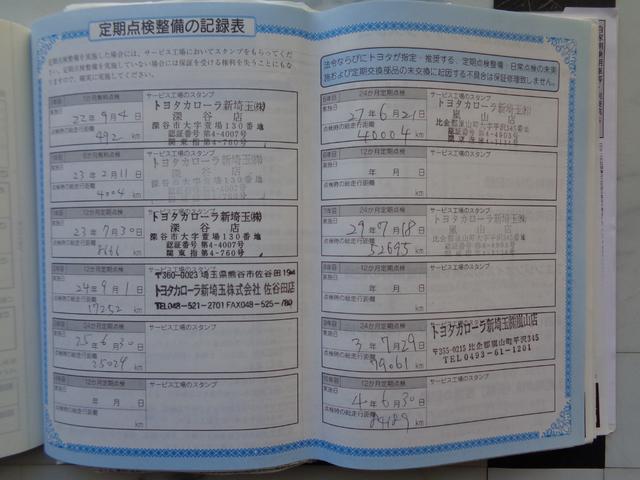 定期点検整備の記録表
定期点検整備を実施した場合には、サービス工場においてスタンプをもらってください。定期点検整備を実施していない場合には保証を受ける権利を失うことにもなりますので、確実に実施してください。
1か月無料点検
サービス工場のスタンプ
実施日
22年9月4日
点検時の総走行距離
492 km
トヨタカローラ新埼玉㈱
深谷店
深谷市大字萱場130番地
認証番号 第4-4007号
関東指第4-760号
6か月無料点検
サービス工場のスタンプ
実施日
23年2月11日
点検時の総走行距離
4004 km
トヨタカローラ新埼玉㈱
深谷店
1年目
12か月定期点検
サービス工場のスタンプ
実施日
23年7月30日
点検時の総走行距離
km
トヨタカローラ新埼玉㈱
深谷店
深谷市大字萱場130番地
認証番号 第4-4007号
関東指第4-760号
12か月定期点検
サービス工場のスタンプ
実施日
24年9月1日
点検時の総走行距離
17252 km
〒360-0023 埼玉県熊谷市佐谷田
トヨタカローラ新埼玉株式会社 佐谷田店
TEL048-521-2701 FAX048-525-
24か月定期点検
サービス工場のスタンプ
実施日
25年6月30日
点検時の総走行距離
25029 km
12か月定期点検
サービス工場のスタンプ
実施日
年 月 日
点検時の総走行距離
km
法令ならびにトヨタが指定・推奨する、定期点検整備・日常点検の未実施および定期交換部品の未交換に起因する不具合は保証修理致しません。
24か月定期点検
サービス工場のスタンプ
実施日
27年6月21日
点検時の総走行距離
40004 km
トヨタカローラ新埼玉㈱
嵐山店
比企郡嵐山町大字平沢345番地
12か月定期点検
サービス工場のスタンプ
実施日
年 月 日
点検時の総走行距離
km
24か月定期点検
サービス工場のスタンプ
実施日
29年7月18日
点検時の総走行距離
52695 km
トヨタカローラ新埼玉㈱
嵐山店
12か月定期点検
サービス工場のスタンプ
実施日
年 月 日
点検時の総走行距離
km
24か月定期点検
実施日
3年7月29日
点検時の総走行距離
79061 km
トヨタカローラ新埼玉㈱嵐山店
〒355-0215 比企郡嵐山町平沢345
TEL0493-61-1201
12か月定期点検
サービス工場のスタンプ
実施日
4年6月30日
点検時の総走行距離
84189 km